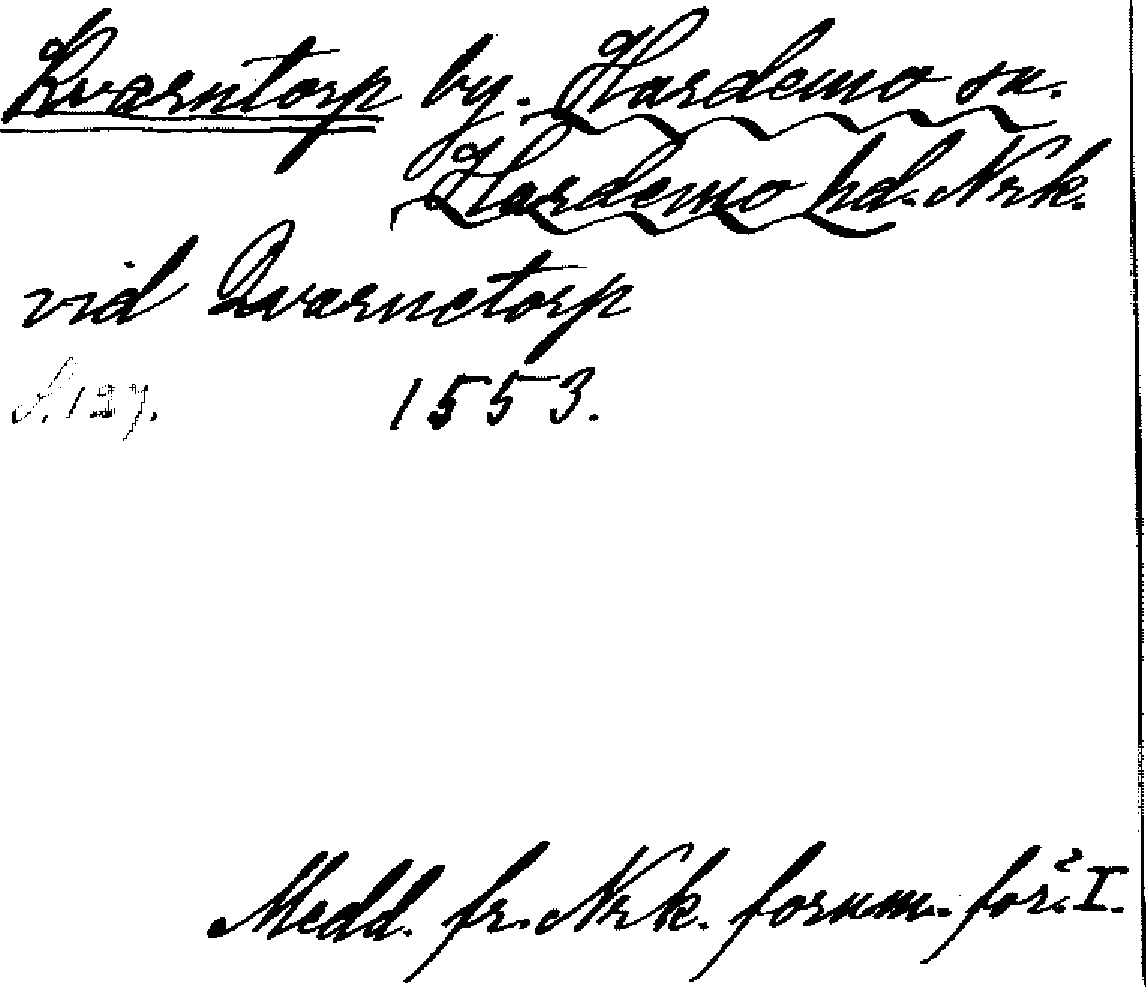 Kvarntorp by. Hardemo sn.
Hardemo hd. Nrk.
vid Qvarnetorp
S. 127. 1553.
Medd. fr. Nrk. fornm. för. I.